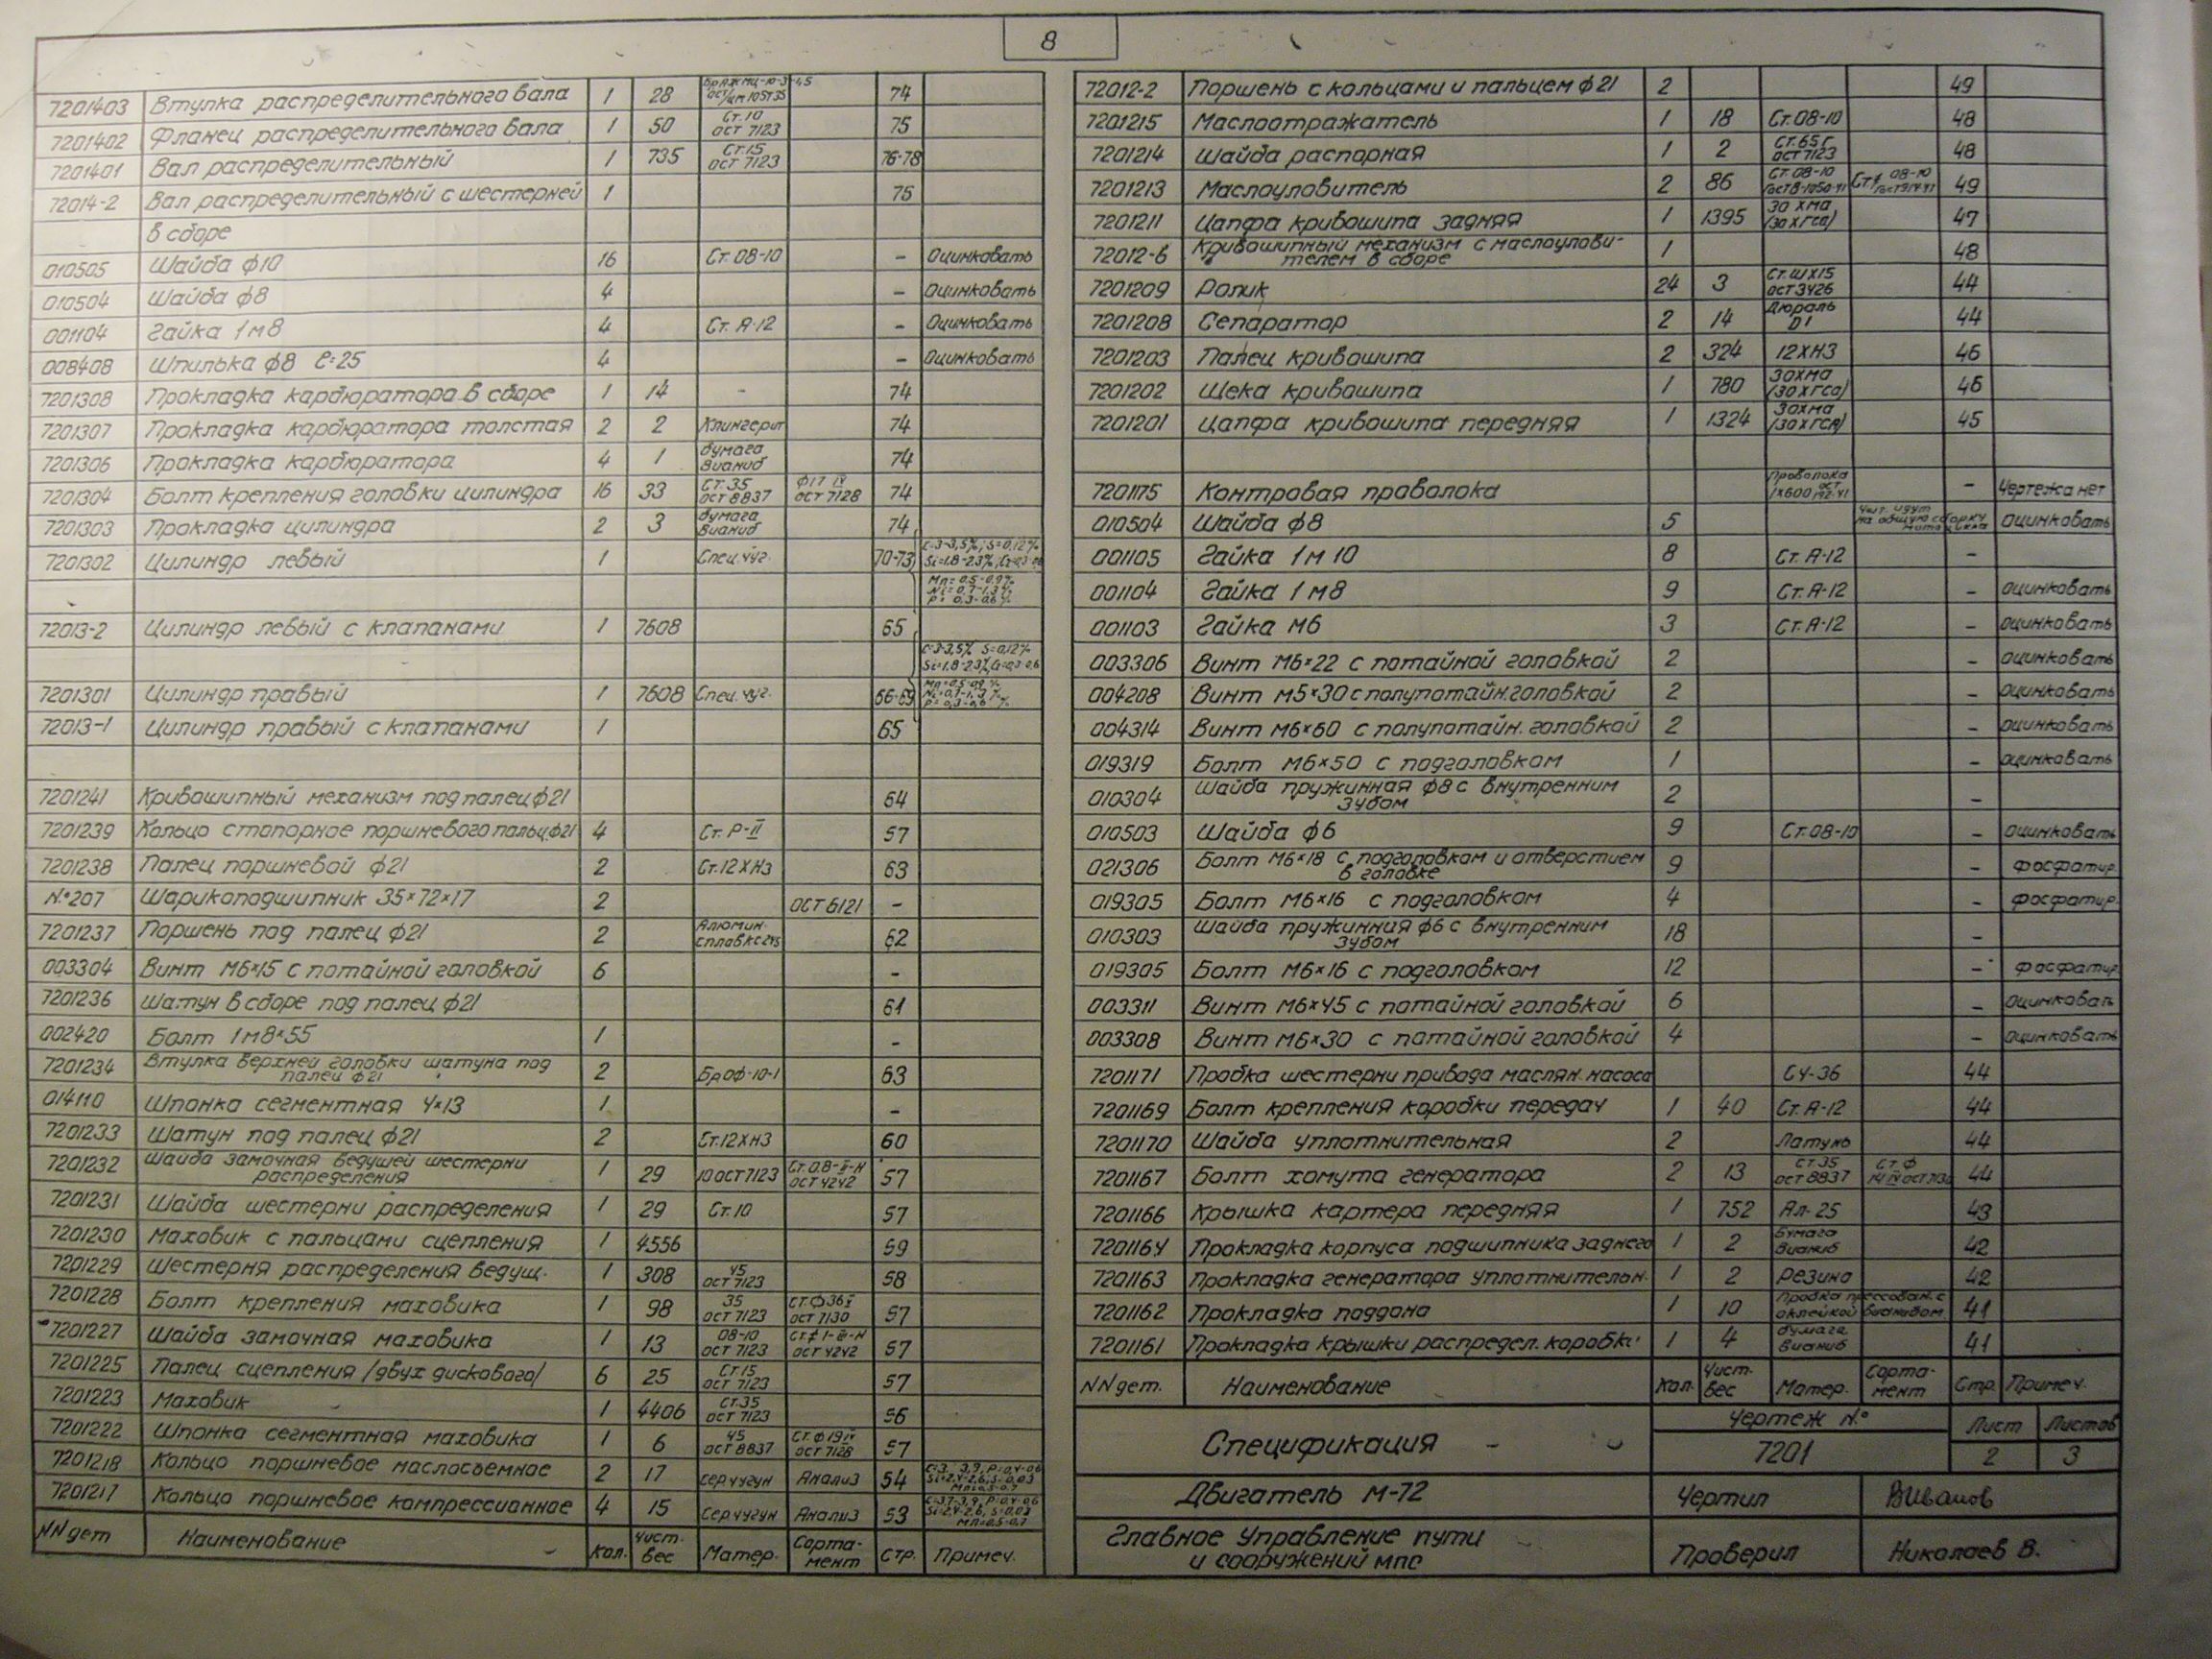 8
7201403 Втулка распределительного вала 1 28 74
7201402 Фланец распределительного вала 1 50 Ст.10 ОСТ 7123 75
7201401 Вал распределительный 1 735 Ст.15 ОСТ 7123 76-78
72014-2 Вал распределительный с шестерней 1 75
в сборе
010505 Шайба ф10 16 Ст.08-10 - Оцинковать
010504 Шайба ф8 4 - Оцинковать
001104 Гайка 1м8 4 Ст. А-12 - Оцинковать
008408 Шпилька ф8 ℓ=25 4 - Оцинковать
7201308 Прокладка карбюратора в сборе 1 14 - 74
7201307 Прокладка карбюратора толстая 2 2 Клингерит 74
7201306 Прокладка карбюратора 4 1 бумага Вианиб 74
7201304 Болт крепления головки цилиндра 16 33 Ст.35 ОСТ 8837 ф17 IV ОСТ 7128 74
7201303 Прокладка цилиндра 2 3 бумага Вианиб 74
7201302 Цилиндр левый 1 Спец.чуг. 70-73 С=3-3,5%; S=0,12%
Mn=0.5-0.9% Ni=0,7-1,3% P=0,3-0,6%
72013-2 Цилиндр левый с клапанами 1 7608 65
С=3-3,5% S=0,12% Si=1.8-2.3% Cr=0.3-0.6
7201301 Цилиндр правый 1 7608 Спец.чуг. 66-69 Mn=0.5-0.9% Ni=0,7-1,3% P=0,3-0,6%
72013-1 Цилиндр правый с клапанами 1 65
7201241 Кривошипный механизм под палец ф21 64
7201239 Кольцо стопорное поршневого пальц.ф21 4 Ст. Р-II 57
7201238 Палец поршневой ф21 2 Ст.12ХН3 63
№207 Шарикоподшипник 35×72×17 2 ОСТ 6121 -
7201237 Поршень под палец ф21 2 Алюмин. сплав 62
003304 Винт М6×15 с потайной головкой 6 -
7201236 Шатун в сборе под палец ф21 61
002420 Болт 1м8×55 1 -
7201234 Втулка верхней головки шатуна под палец ф21 2 БрОФ-10-1 63
014110 Шпонка сегментная 4×13 1 -
7201233 Шатун под палец ф21 2 Ст.12ХН3 60
7201232 Шайба замочная ведущей шестерни распределения 1 29 10 ОСТ 7123 Ст.0.8-II-Н ОСТ 4242 57
7201231 Шайба шестерни распределения 1 29 Ст.10 57
7201230 Маховик с пальцами сцепления 1 4556 59
7201229 Шестерня распределения ведущ. 1 308 45 ОСТ 7123 58
7201228 Болт крепления маховика 1 98 35 ОСТ 7123 Ст.ф36 ОСТ 7130 57
7201227 Шайба замочная маховика 1 13 08-10 ОСТ 7123 ОСТ 4242 57
7201225 Палец сцепления /двух дискового/ 6 25 Ст.15 ОСТ 7123 57
7201223 Маховик 1 4406 Ст.35 ОСТ 7123 56
7201222 Шпонка сегментная маховика 1 6 45 ОСТ 8837 Ст.ф19 IV ОСТ 7128 57
7201218 Кольцо поршневое маслосъемное 2 17 Сер чугун Анализ 54
7201217 Кольцо поршневое компрессионное 4 15 Сер чугун Анализ 53 С=3.7-3,9, P=0,4-0.6 Si=2.4-2.6, S=0,03 Mn=0,5-0,7
NN дет Наименование Кол. Чист. вес Матер. Сорта-мент Стр. Примеч.
72012-2 Поршень с кольцами и пальцем ф21 2 49
7201215 Маслоотражатель 1 18 Ст.08-10 48
7201214 Шайба распорная 1 2 Ст.65Г ОСТ 7123 48
7201213 Маслоуловитель 2 86 Ст.08-10 49
7201211 Цапфа кривошипа задняя 1 1395 30 ХМА /30ХГСА/ 47
72012-6 Кривошипный механизм с маслоулови-
телем в сборе 1 48
7201209 Ролик 24 3 Ст.ШХ15 ОСТ 3426 44
7201208 Сепаратор 2 14 Дюраль D1 44
7201203 Палец кривошипа 2 324 12ХН3 46
7201202 Щека кривошипа 1 780 30ХМА /30ХГСА/ 46
7201201 Цапфа кривошипа передняя 1 1324 30ХМА /30ХГСА/ 45
7201175 Контровая проволока Проволока - Чертежа нет
010504 Шайба ф8 5 идут на общую сборку мотоцикла Оцинковать
001105 Гайка 1м10 8 Ст. А-12 -
001104 Гайка 1м8 9 Ст. А-12 - Оцинковать
001103 Гайка М6 3 Ст. А-12 - Оцинковать
003306 Винт М6×22 с потайной головкой 2 - Оцинковать
004208 Винт М5×30 с полупотайн.головкой 2 - Оцинковать
004314 Винт М6×60 с полупотайн. головкой 2 - Оцинковать
019319 Болт М6×50 с подголовком 1 - Оцинковать
010304 Шайба пружинная ф8 с внутренним зубом 2 -
010503 Шайба ф6 9 Ст.08-10 - Оцинковать
021306 Болт М6×18 с подголовком и отверстием в головке 9 - Фосфатир.
019305 Болт М6×16 с подголовком 4 - Фосфатир.
010303 Шайба пружинная ф6 с внутренним зубом 18 -
019305 Болт М6×16 с подголовком 12 - Фосфатир.
003311 Винт М6×45 с потайной головкой 6 - Оцинковать
003308 Винт М6×30 с потайной головкой 4 - Оцинковать
7201171 Пробка шестерни привода маслян. насоса СЧ-36 44
7201169 Болт крепления коробки передач 1 40 Ст. А-12 44
7201170 Шайба уплотнительная 2 Латунь 44
7201167 Болт хомута генератора 2 13 Ст.35 ОСТ 8837 Ст.ф 14 IV ОСТ 7130 44
7201166 Крышка картера передняя 1 752 Ал-25 43
7201164 Прокладка корпуса подшипника заднего 1 2 Бумага Вианиб 42
7201163 Прокладка генератора уплотнительн. 1 2 Резина 42
7201162 Прокладка поддона 1 10 Пробка прессован. с оклейкой вианибом 41
7201161 Прокладка крышки распредел. коробки 1 4 бумага Вианиб 41
NN дет. Наименование Кол. Чист. вес Матер. Сорта-мент Стр. Примеч.
Спецификация Чертеж № 7201 Лист 2 Листов 3
Двигатель М-72 Чертил ВИванов
Главное Управление пути
и сооружений МПС Проверил Николаев В.